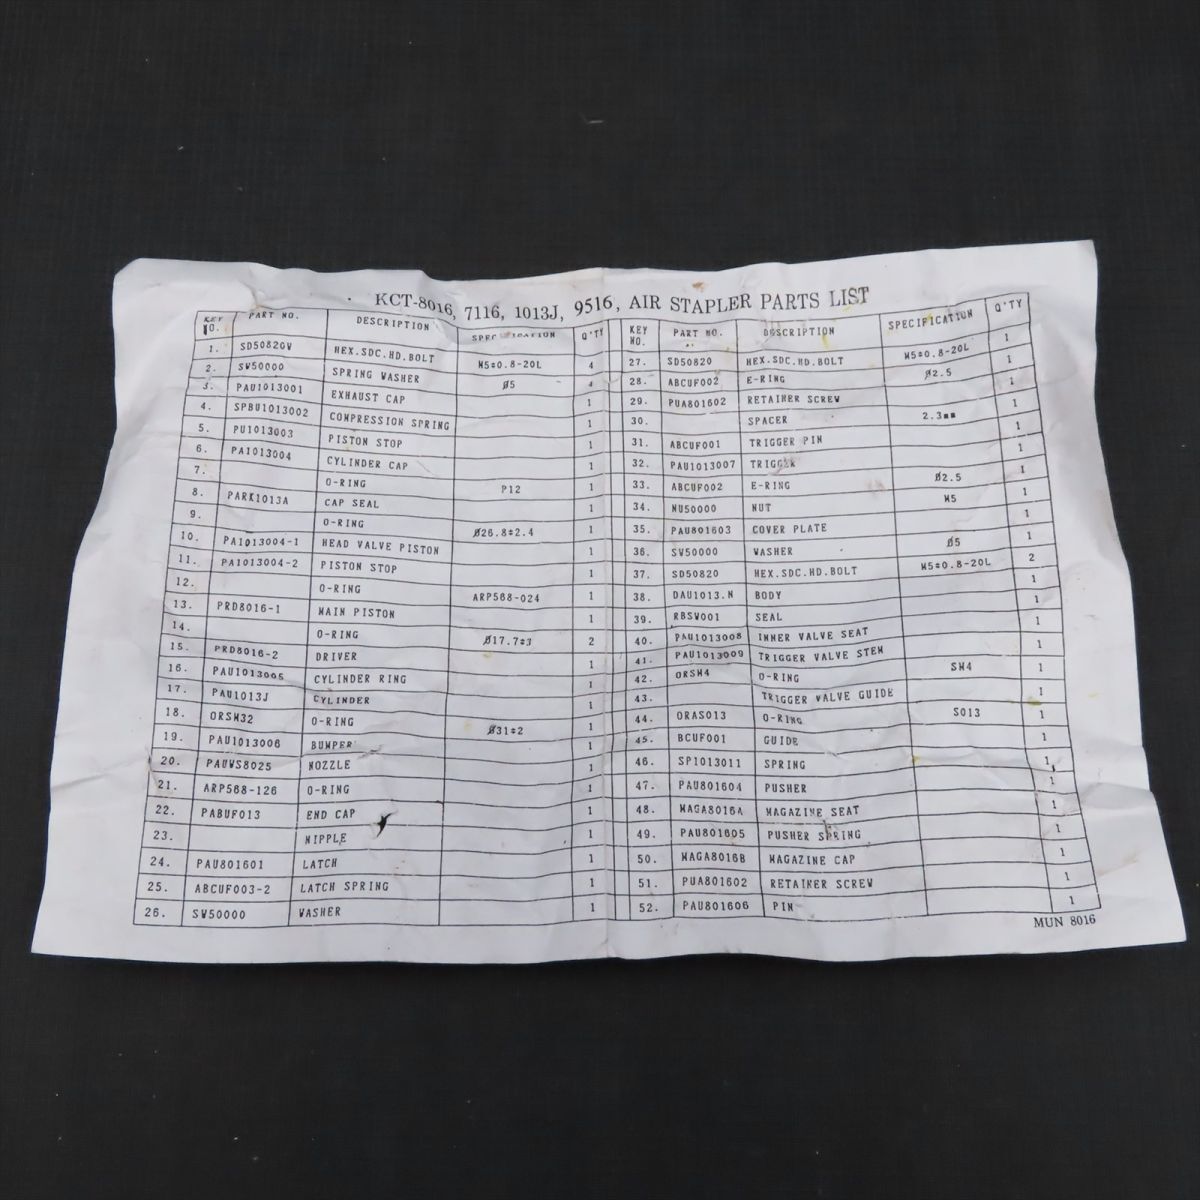 KCT-8016, 7116, 1013J, 9516, AIR STAPLER PARTS LIST
KEY NO. PART NO. DESCRIPTION SPECIFICATION Q'TY
1. SD50820W HEX.SDC.HD.BOLT M5*0.8-20L 4
2. SW50000 SPRING WASHER Ø5 4
3. PAU1013001 EXHAUST CAP 1
4. SPBU1013002 COMPRESSION SPRING 1
5. PU1013003 PISTON STOP 1
6. PA1013004 CYLINDER CAP 1
7. O-RING P12 1
8. PARK1013A CAP SEAL 1
9. O-RING Ø26.8*2.4 1
10. PA1013004-1 HEAD VALVE PISTON 1
11. PA1013004-2 PISTON STOP 1
12. O-RING ARP568-024 1
13. PRD8016-1 MAIN PISTON 1
14. O-RING Ø17.7*3 2
15. PRD8016-2 DRIVER 1
16. PAU1013005 CYLINDER RING 1
17. PAU1013J CYLINDER 1
18. ORSM32 O-RING Ø31*2 1
19. PAU1013006 BUMPER 1
20. PAUWS8025 NOZZLE 1
21. ARP568-126 O-RING 1
22. PABUF013 END CAP 1
23. NIPPLE 1
24. PAU801601 LATCH 1
25. ABCUF003-2 LATCH SPRING 1
26. SW50000 WASHER 1
KEY NO. PART NO. DESCRIPTION SPECIFICATION Q'TY
27. SD50820 HEX.SDC.HD.BOLT M5*0.8-20L 1
28. ABCUF002 E-RING Ø2.5 1
29. PUA801602 RETAINER SCREW 1
30. SPACER 2.3mm 1
31. ABCUF001 TRIGGER PIN 1
32. PAU1013007 TRIGGER 1
33. ABCUF002 E-RING Ø2.5 1
34. NU50000 NUT M5 1
35. PAU801603 COVER PLATE 1
36. SW50000 WASHER Ø5 1
37. SD50820 HEX.SDC.HD.BOLT M5*0.8-20L 2
38. DAU1013.N BODY 1
39. RBSW001 SEAL 1
40. PAU1013008 INNER VALVE SEAT 1
41. PAU1013009 TRIGGER VALVE STEM 1
42. ORSM4 O-RING SM4 1
43. TRIGGER VALVE GUIDE 1
44. ORAS013 O-RING S013 1
45. BCUF001 GUIDE 1
46. SP1013011 SPRING 1
47. PAU801604 PUSHER 1
48. MAGA8016A MAGAZINE SEAT 1
49. PAU801605 PUSHER SPRING 1
50. MAGA8016B MAGAZINE CAP 1
51. PUA801602 RETAINER SCREW 1
52. PAU801606 PIN 1
MUN 8016